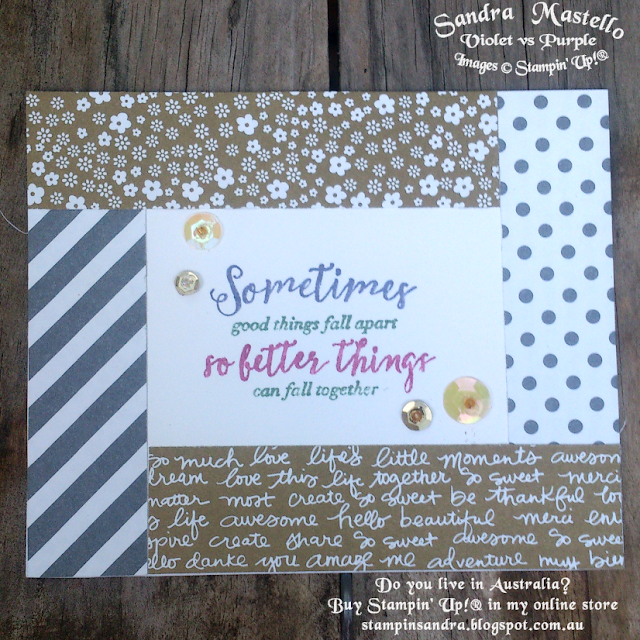 Sandra Mastello
Violet vs Purple
Images © Stampin' Up!®
Sometimes
good things fall apart
so better things
can fall together
so much love life's little moments awesom
dream love this life together so sweet merci
matter most create so sweet be thankful lo
s life awesome hello beautiful merci en
pire create share so sweet awesome so sweet
llo danke you amaze me adventure
Do you live in Australia?
Buy Stampin' Up!® in my online store
stampinsandra.blogspot.com.au